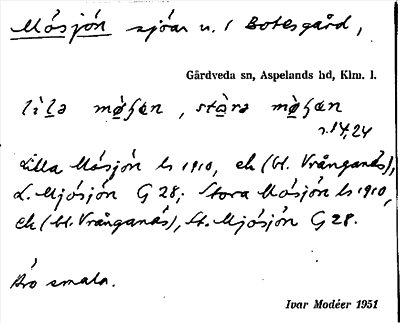 Mósjón sjöar n. / Botesgård,
Gårdveda sn, Aspelands hd, Klm. l.
s. 14, 24
Lilla Mósjón ls 1910, ek (bl. Vrånganäs),
L. Mjósjón G 28; Stora Mósjón ls 1910,
ek (bl. Vrånganäs), St. Mjósjón G 28.
smala.
Ivar Modéer 1951